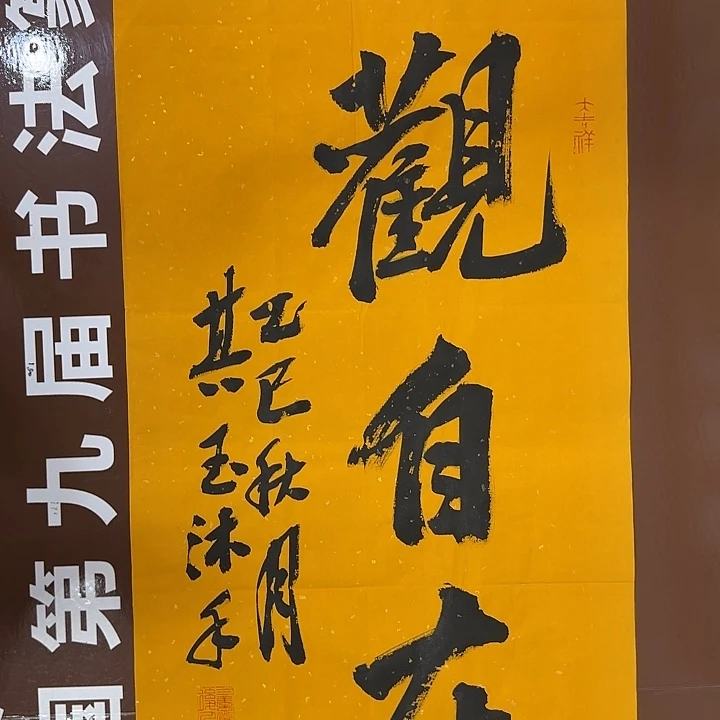 大吉祥
觀自在
乙巳秋月
其玉沐手
国第九届书法篆